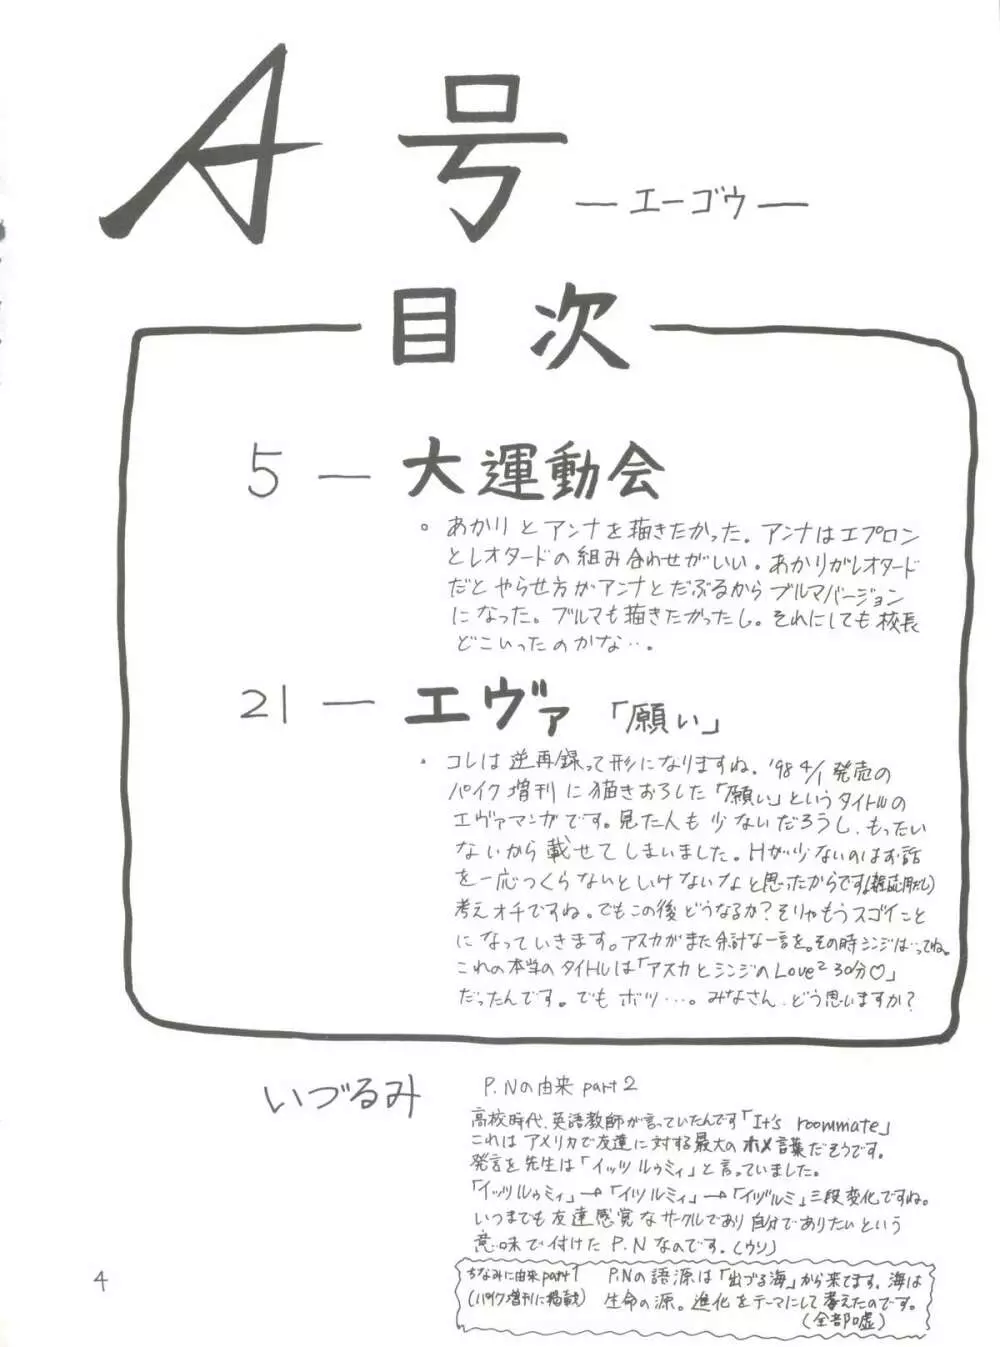 A号
—エーゴウ—
目次
5 — 大運動会
。あかりとアンナを描きたかった。アンナはエプロン
とレオタードの組み合わせがいい。あかりがレオタード
だとやらせ方がアンナとだぶるからブルマバージョン
になった。ブルマも描きたかったし。それにしても校長
どこいったのかな…。
21 — エヴァ「願い」
・コレは逆再録って形になりますね。'98 4/1 発売の
パイク増刊に描きおろした「願い」というタイトルの
エヴァマンガです。見た人も少ないだろうし、もったい
ないから載せてしまいました。Hが少ないのはお話
を一応つくらないといけないなと思ったからです
考えオチですね。でもこの後どうなるか？そりゃもうスゴイこと
になっていきます。アスカがまた余計な一言を。その時シンジは…ってね。
これの本当のタイトルは「アスカとシンジのLove² 30分♡」
だったんです。でもボツ…。みなさん、どう思いますか？
いづるみ
P.Nの由来 part 2
高校時代、英語教師が言っていたんです「It's roommate」
これはアメリカで友達に対する最大のホメ言葉だそうです。
発言を先生は「イッツ ルゥミィ」と言っていました。
「イッツルゥミィ」→「イツルミィ」→「イヅルミ」三段変化ですね。
いつまでも友達感覚なサークルであり自分でありたいという
意味で付けたP.Nなのです。(ウソ)
ちなみに由来part1 P.Nの語源は「出づる海」から来てます。海は
(パイク増刊に掲載) 生命の源。進化をテーマにして考えたのです。
(全部嘘)
4